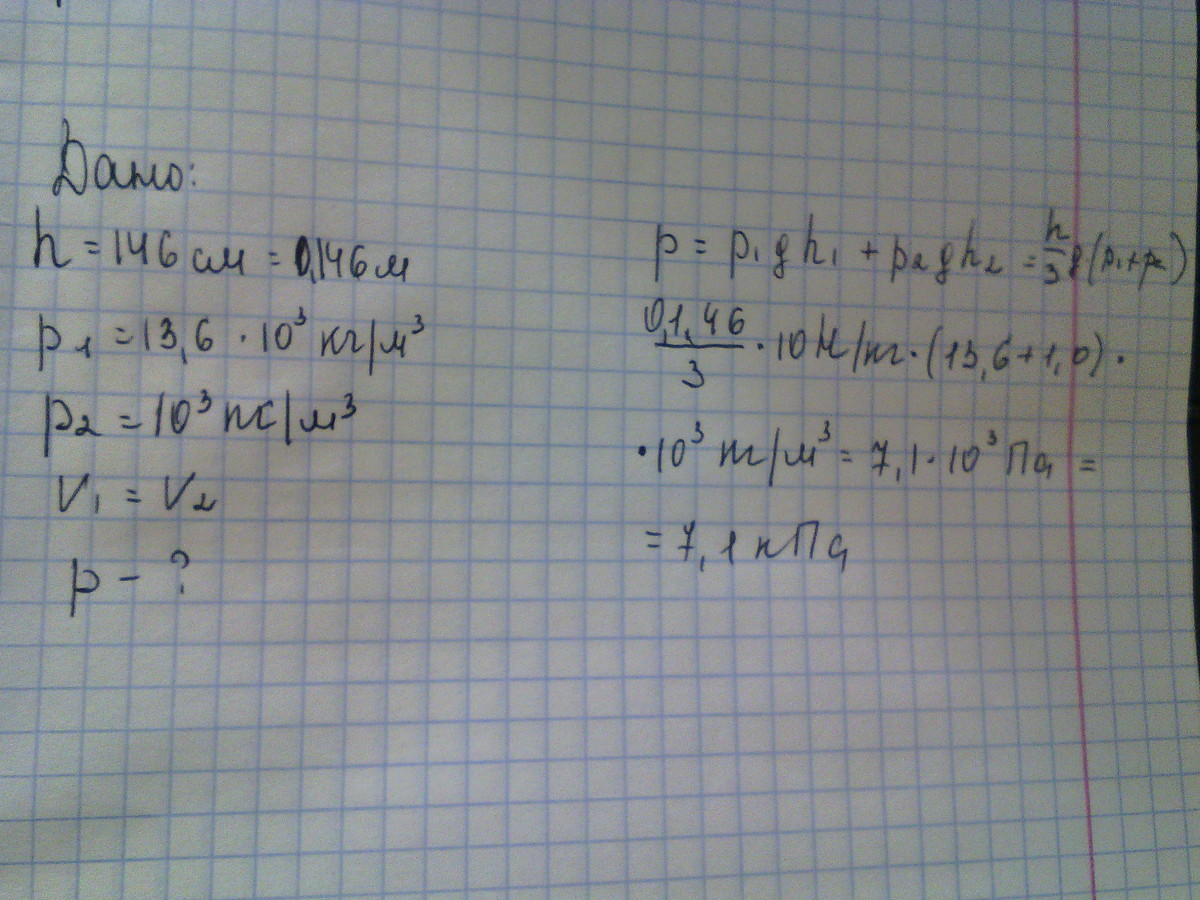 Дано:
h = 146 см = 0,146 м
p₁ = 13,6 · 10³ кг/м³
p₂ = 10³ кг/м³
V₁ = V₂
p – ?
p = p₁gh₁ + p₂gh₂ = h/3 g (p₁+p₂)
0,1,46/3 · 10 Н/кг · (13,6+1,0) ·
· 10³ кг/м³ = 7,1 · 10³ Па =
= 7,1 кПа